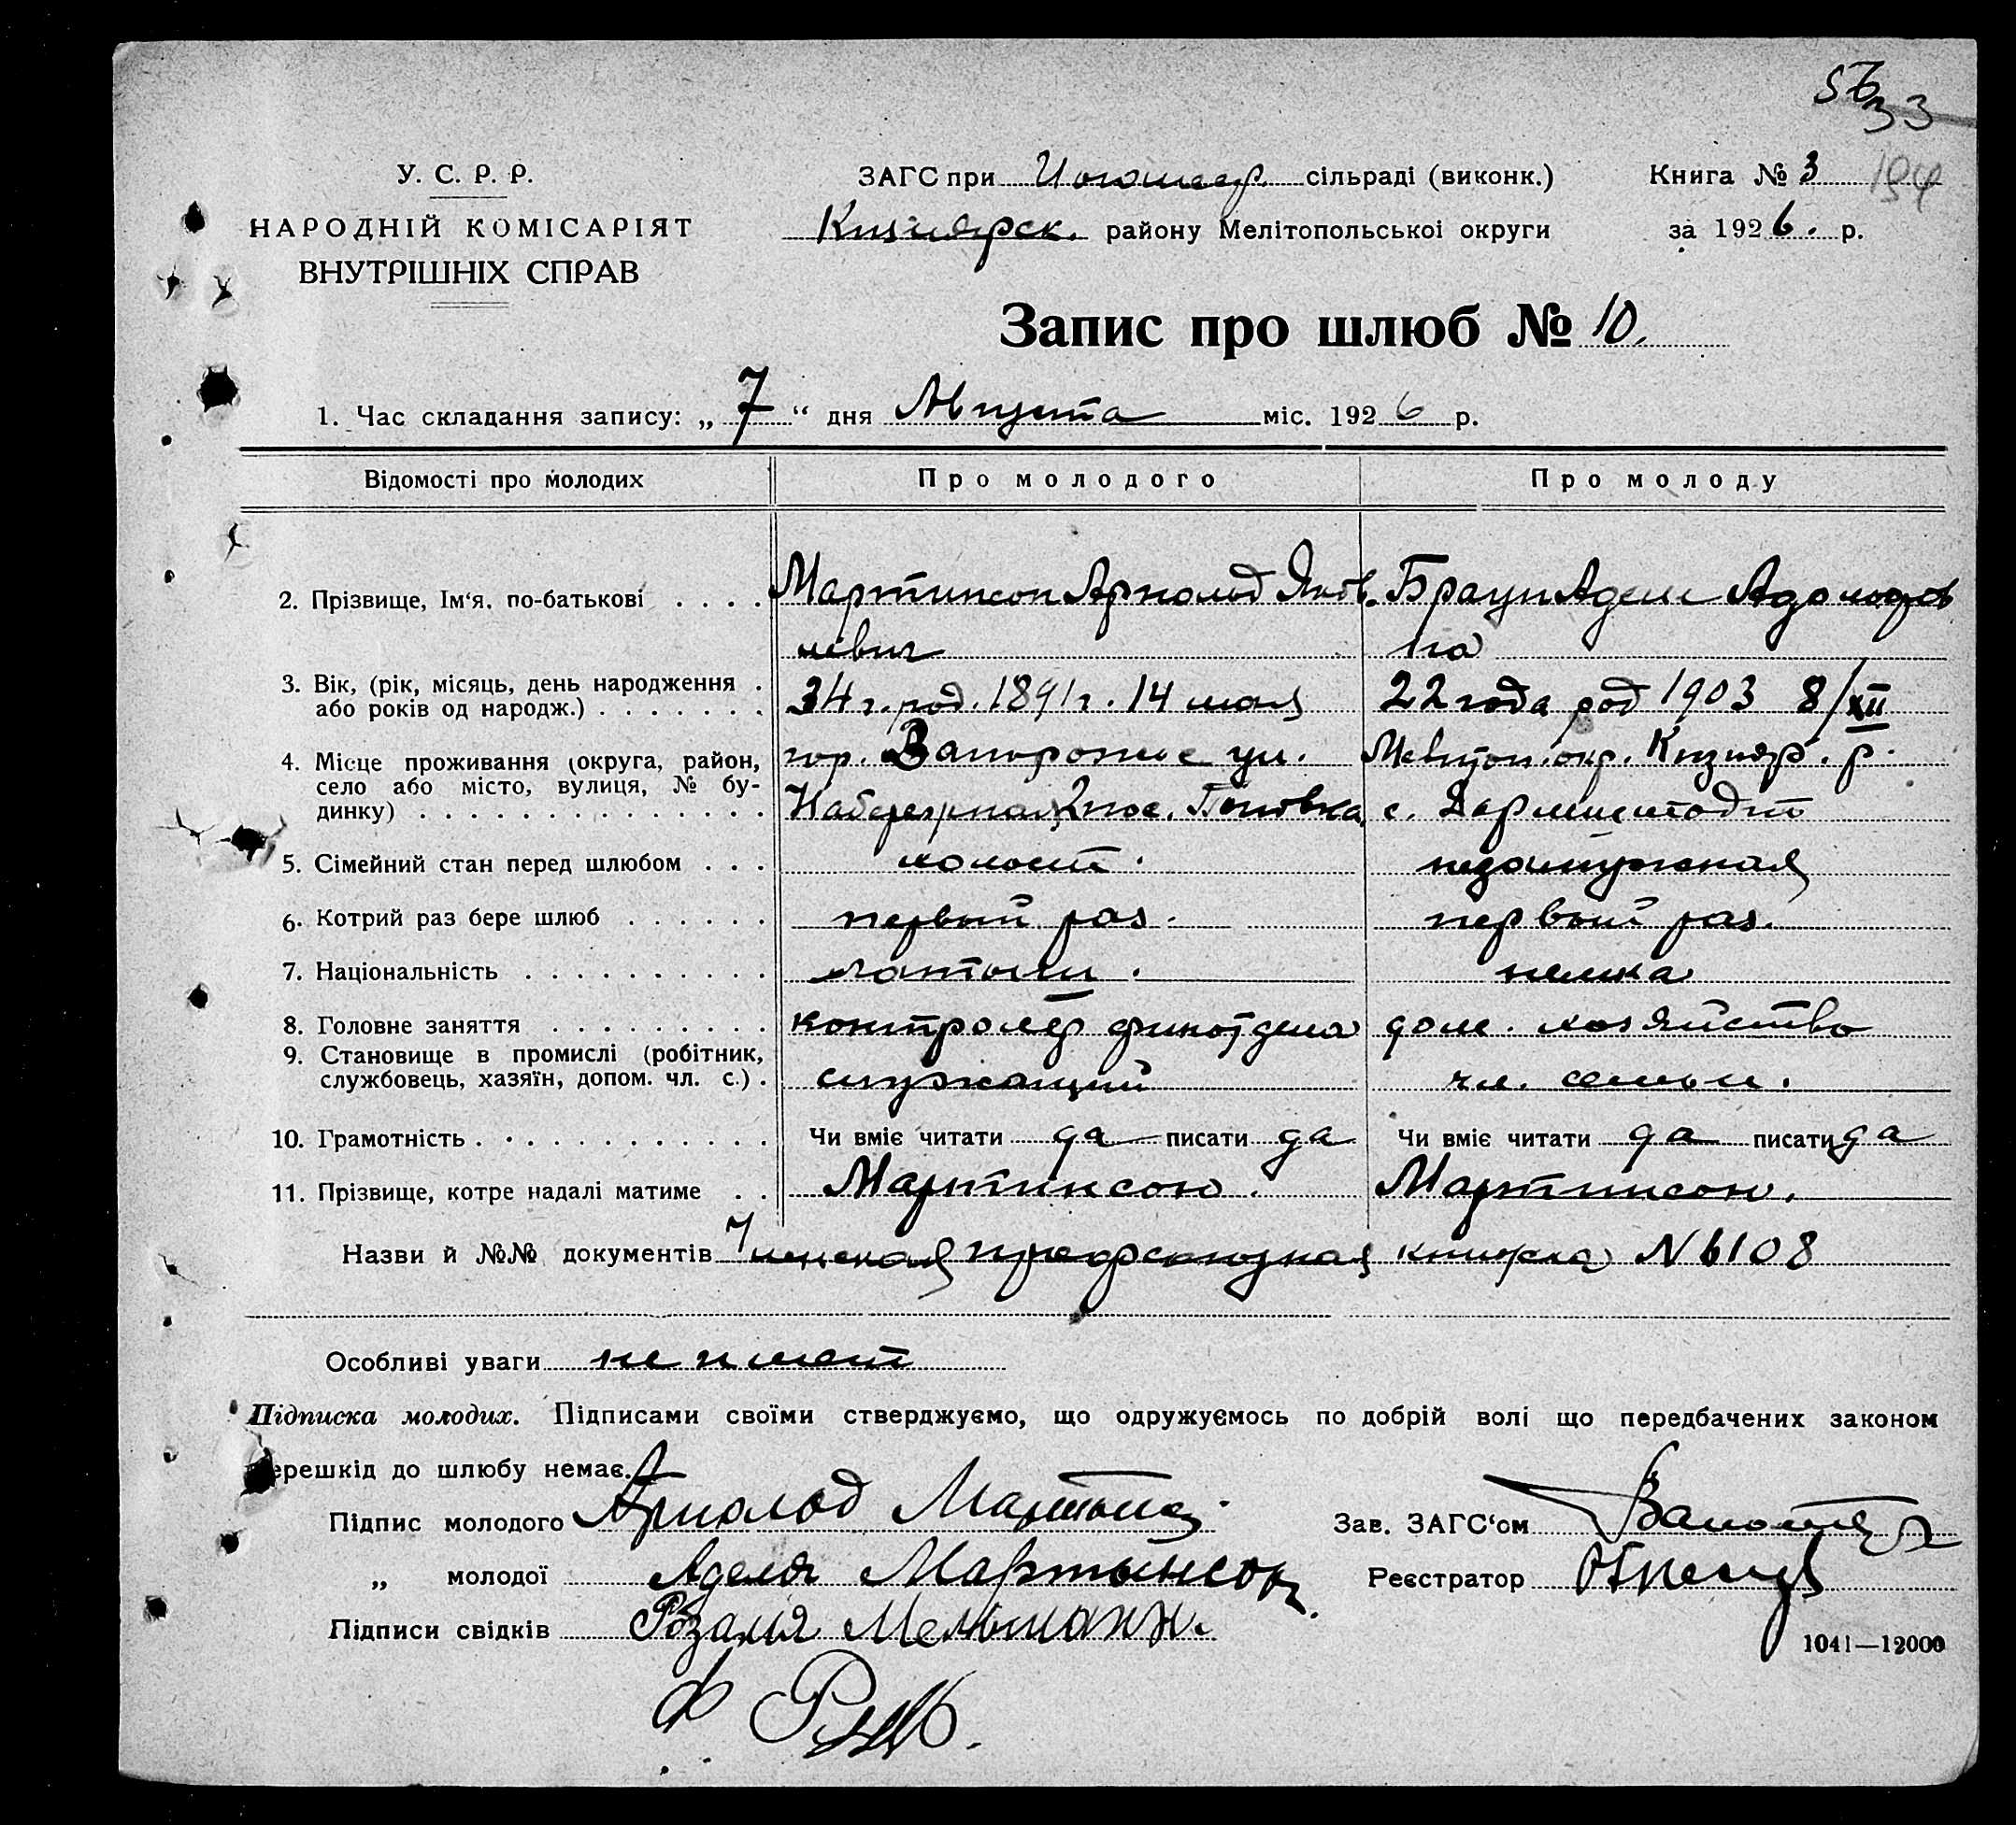 33
У. С. Р. Р.
НАРОДНІЙ КОМІСАРІЯТ
ВНУТРІШНІХ СПРАВ
ЗАГС при сільраді (виконк.)
Кизиярск. району Мелітопольської округи
Книга № 3
194
за 1926. р.
Запис про шлюб № 10.
1. Час складання запису: „ 7 “ дня Августа міс. 1926 р.
Відомості про молодих Про молодого Про молоду
2. Прізвище, Ім‘я, по-батькові . . . . Мартинсон Арнольд Яков- Браун Адель Адольфов
левич на
3. Вік, (рік, місяць, день народження .
або років од народж.) . . . . . . . 34 г. род. 1891 г. 14 мая 22 года род 1903 8/XII
4. Місце проживання (округа, район, гор. Запорожье ул. Мелитоп. окр. Кизияр. р.
село або місто, вулиця, № бу-
динку) . . . . . . . . . . . . . . Набережная 2 пос. с. Дармштадт
5. Сімейний стан перед шлюбом . . . холост. незамужная
6. Котрий раз бере шлюб . . . . . . первый раз. первый раз.
7. Національність . . . . . . . . . . латыш. немка
8. Головне заняття . . . . . . . . . контролер финотдела дом. хозяйство
9. Становище в промислі (робітник,
службовець, хазяїн, допом. чл. с.) . служащий чл. семьи.
10. Грамотність . . . . . . . . . . . . Чи вміє читати да писати да Чи вміє читати да писати да
11. Прізвище, котре надалі матиме . . Мартинсон. Мартинсон.
Назви й №№ документів членская профсоюзная книжка N 6108
Особливі уваги не имеет
Підписка молодих. Підписами своїми стверджуємо, що одружуємось по добрій волі що передбачених законом
перешкід до шлюбу немає.
Підпис молодого Арнольд Зав. ЗАГС‘ом
„ молодої Аделя Мартынсон. Реєстратор
Підписи свідків Розалия
1041—12000